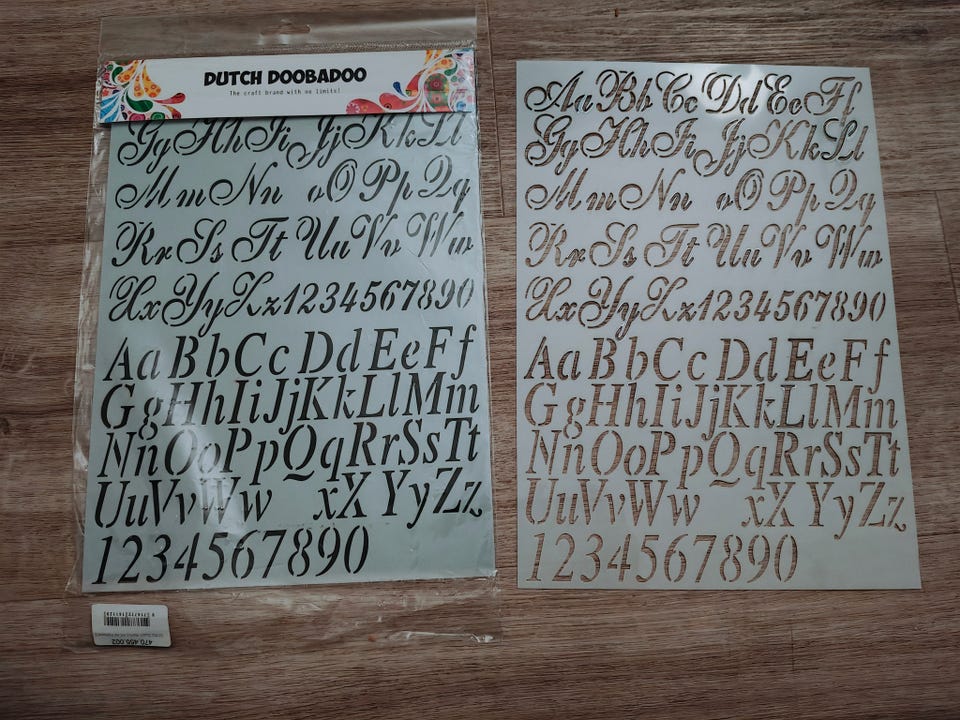 DUTCH DOOBADOO
The craft brand with no limits!
Gg Hh Ii Jj Kk Ll
Mm Nn oO Pp Qq
Rr Ss Tt Uu Vv Ww
Xx Yy Zz 1234567890
Aa Bb Cc Dd Ee Ff
Gg Hh Ii Jj Kk Ll Mm
Nn Oo Pp Qq Rr Ss Tt
Uu Vv Ww xX Yy Zz
1234567890
470.455.002
Aa Bb Cc Dd Ee Ff
Gg Hh Ii Jj Kk Ll
Mm Nn oO Pp Qq
Rr Ss Tt Uu Vv Ww
Xx Yy Zz 1234567890
Aa Bb Cc Dd Ee Ff
Gg Hh Ii Jj Kk Ll Mm
Nn Oo Pp Qq Rr Ss Tt
Uu Vv Ww xX Yy Zz
1234567890